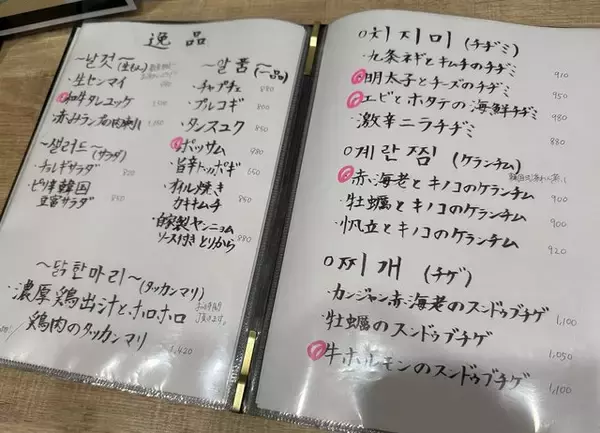 逸品
~날것(生もの)
・生センマイ 880
・和牛タンユッケ
・赤みランプの肉刺し
~샐러드~(サラダ)
・チョレギサラダ 850
・ピリ辛韓国
豆富サラダ 850
~일품~(一品)
・チャプチェ 890
・プルコギ 850
・タンスユク 850
・ポッサム 980
・旨辛トッポギ 650
・オイル焼き
カキキムチ
・自家製ヤンニョム
ソース付きとりから 880
~닭한마리~(タッカンマリ)
・濃厚鶏出汁とホロホロ
鶏肉のタッカンマリ
1,420
O치지미(チヂミ)
・九条ネギとキムチのチヂミ 910
・明太子とチーズのチヂミ 950
・エビとホタテの海鮮チヂミ 980
・激辛ニラチヂミ 880
O계란찜(ケランチム)
・赤海老とキノコのケランチム 900
・牡蠣とキノコのケランチム 900
・帆立とキノコのケランチム 920
O찌개(チゲ)
・カンジャン赤海老のスンドゥブチゲ 1,100
・牡蠣のスンドゥブチゲ 1,050
・牛ホルモンのスンドゥブチゲ 1,100